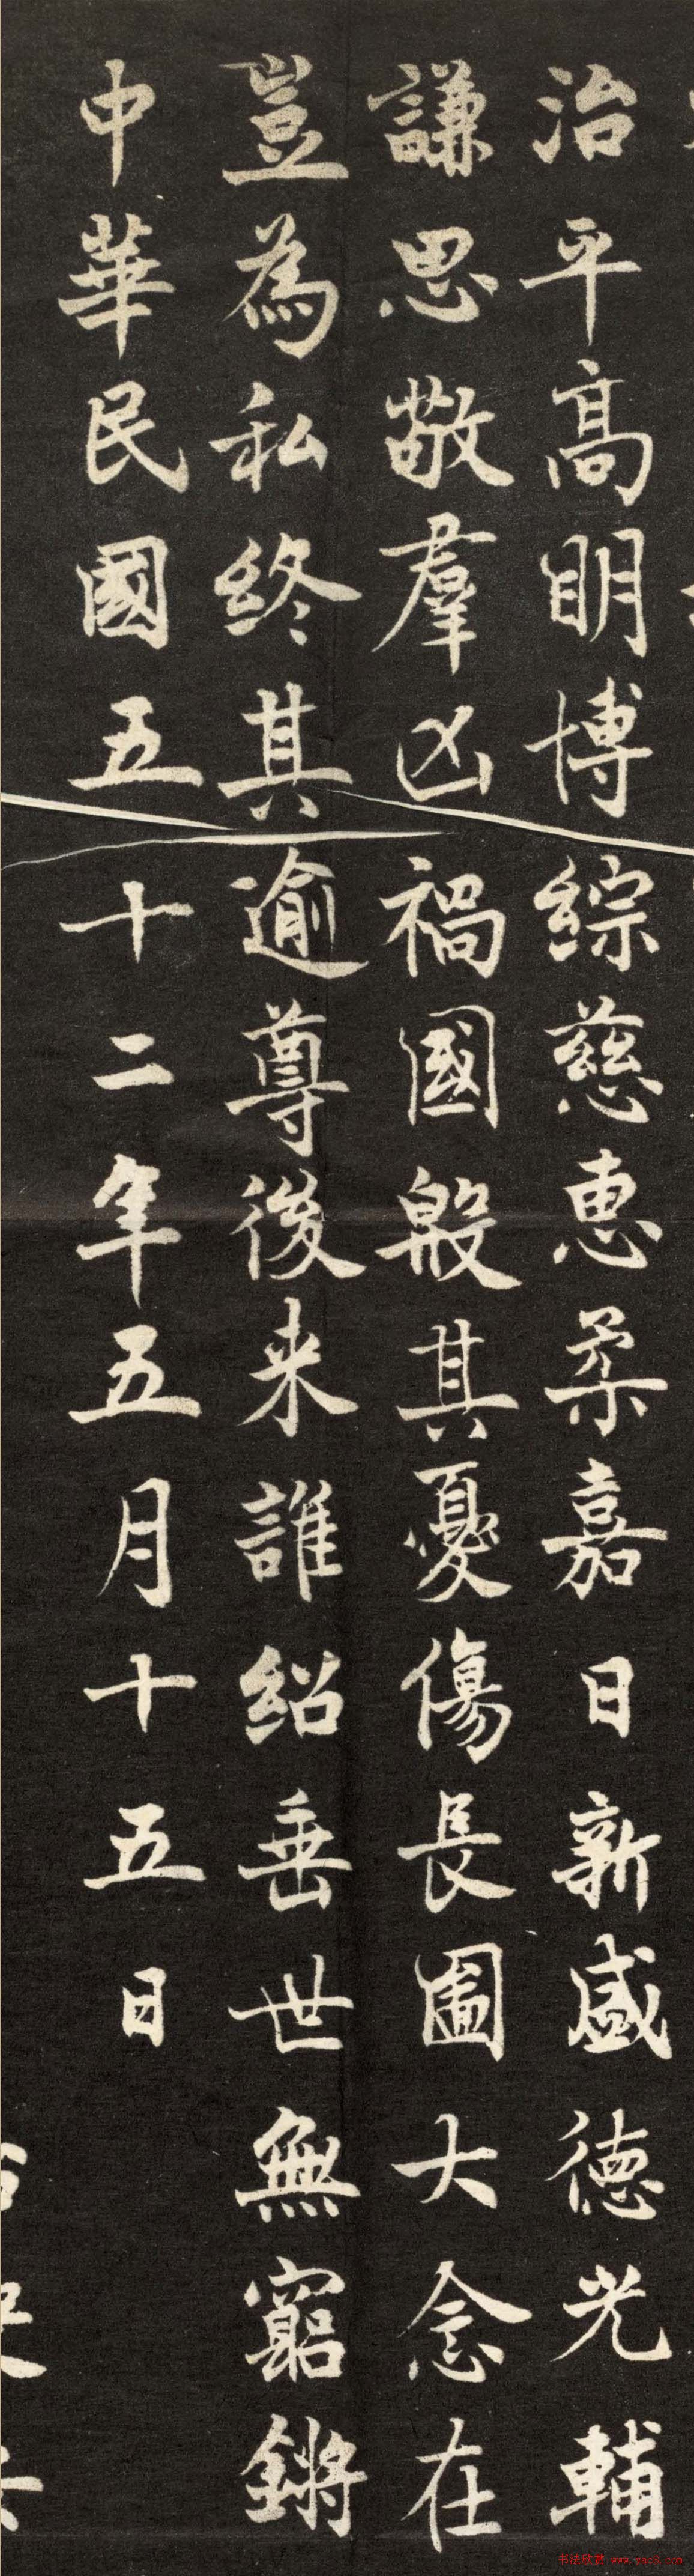 治平高明博綜慈惠柔嘉日新盛德光輔
謙思敬羣凶禍國殷其憂傷長圖大念在
豈為私終其逾尊後来誰紹垂世無窮鏘
中華民國五十二年五月十五日
书法欣赏 www.yac8.com